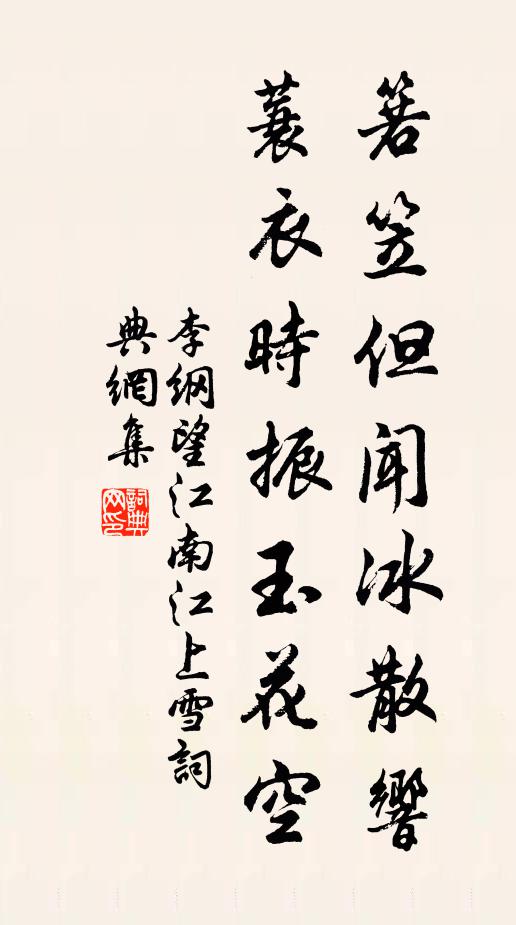 箬笠但闻冰散響
蓑衣時振玉花空
李纲望江南江上雪詞
典網集
詞典网印